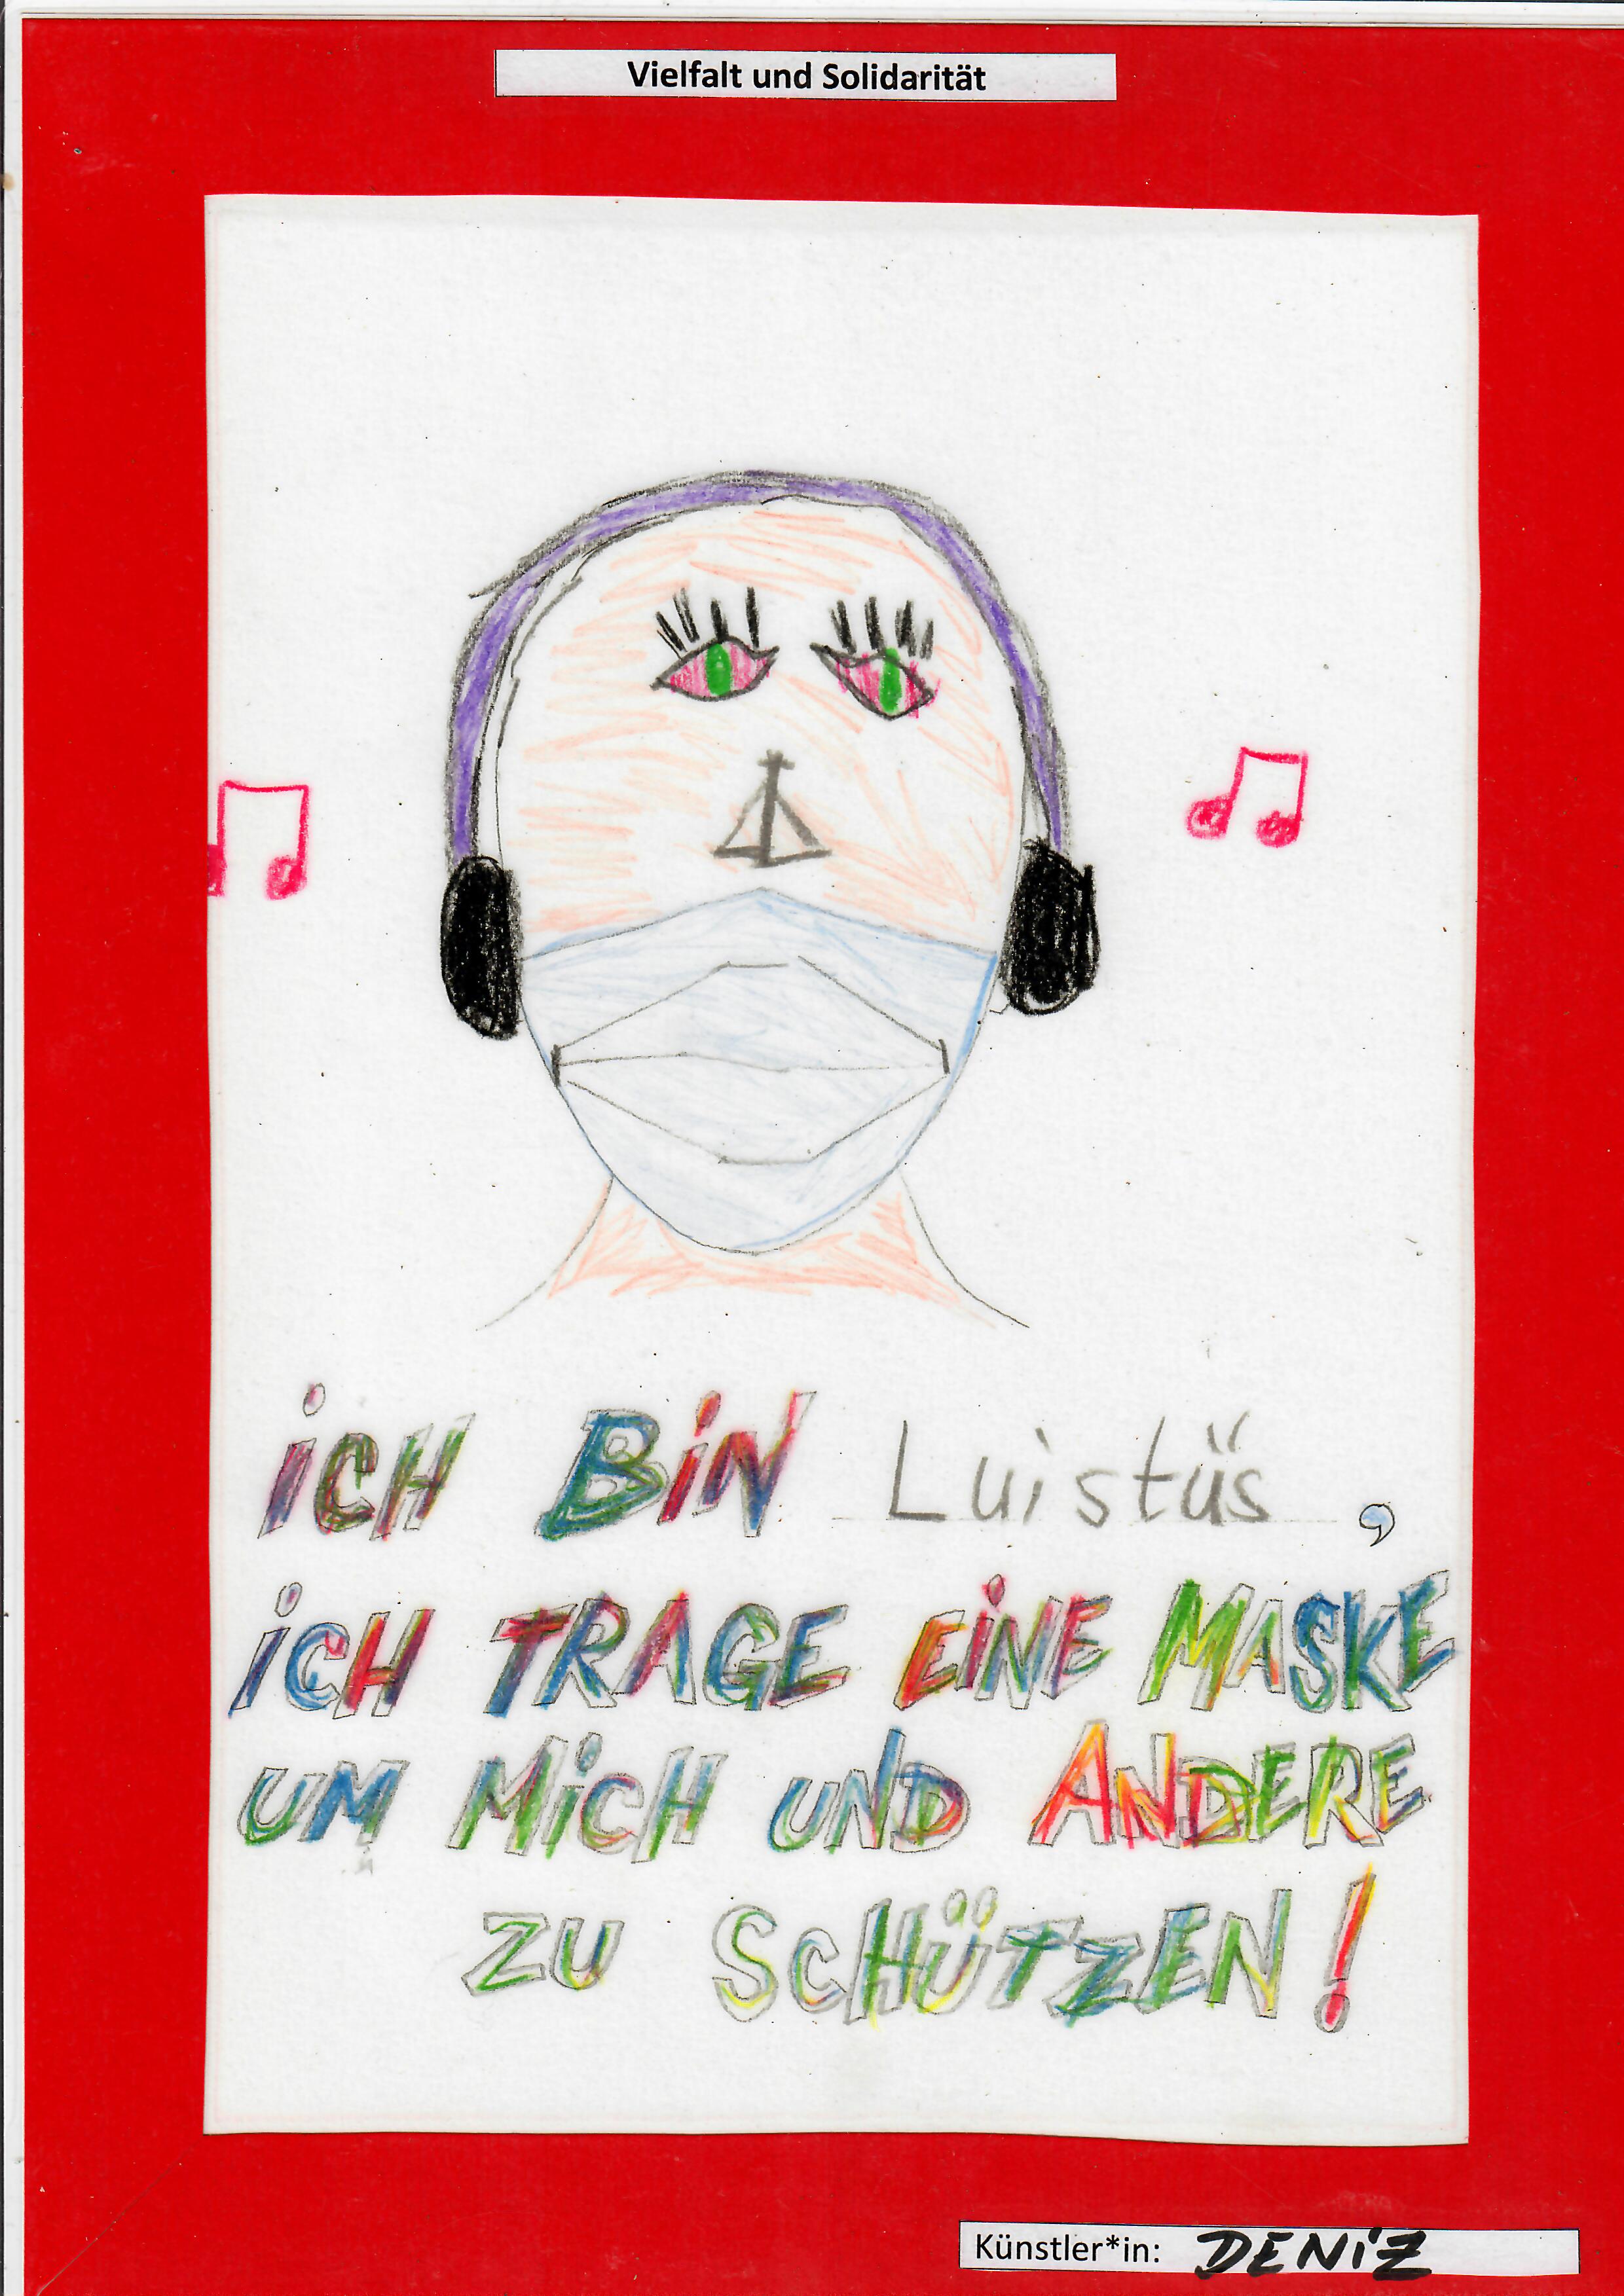 Vielfalt und Solidarität
iCH BiN Luistüs,
iCH TRAGE EiNE MASKE
UM MiCH UND ANDERE
ZU SCHÜTZEN!
Künstler*in: DENiZ